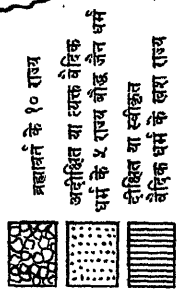 ब्रह्मावर्त के १० राज्य
अदीक्षित या त्यक्त वैदिक
धर्म के ५ राज्य बौद्ध जैन धर्म
दीक्षित या स्वीकृत
वैदिक धर्म के राज्य